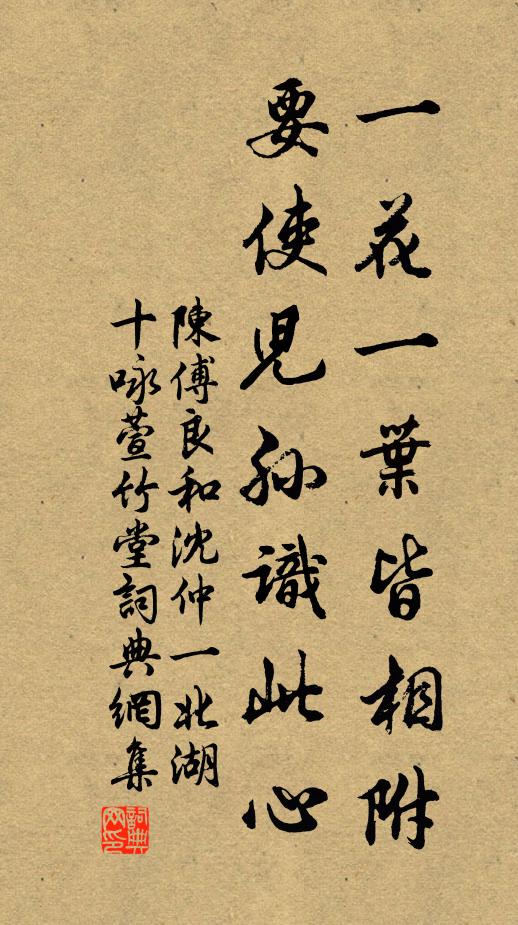 一花一葉皆相附
要使兒孫識此心
陳傅良和沈仲一北湖
十咏萱竹堂詞典網集
詞典
网印